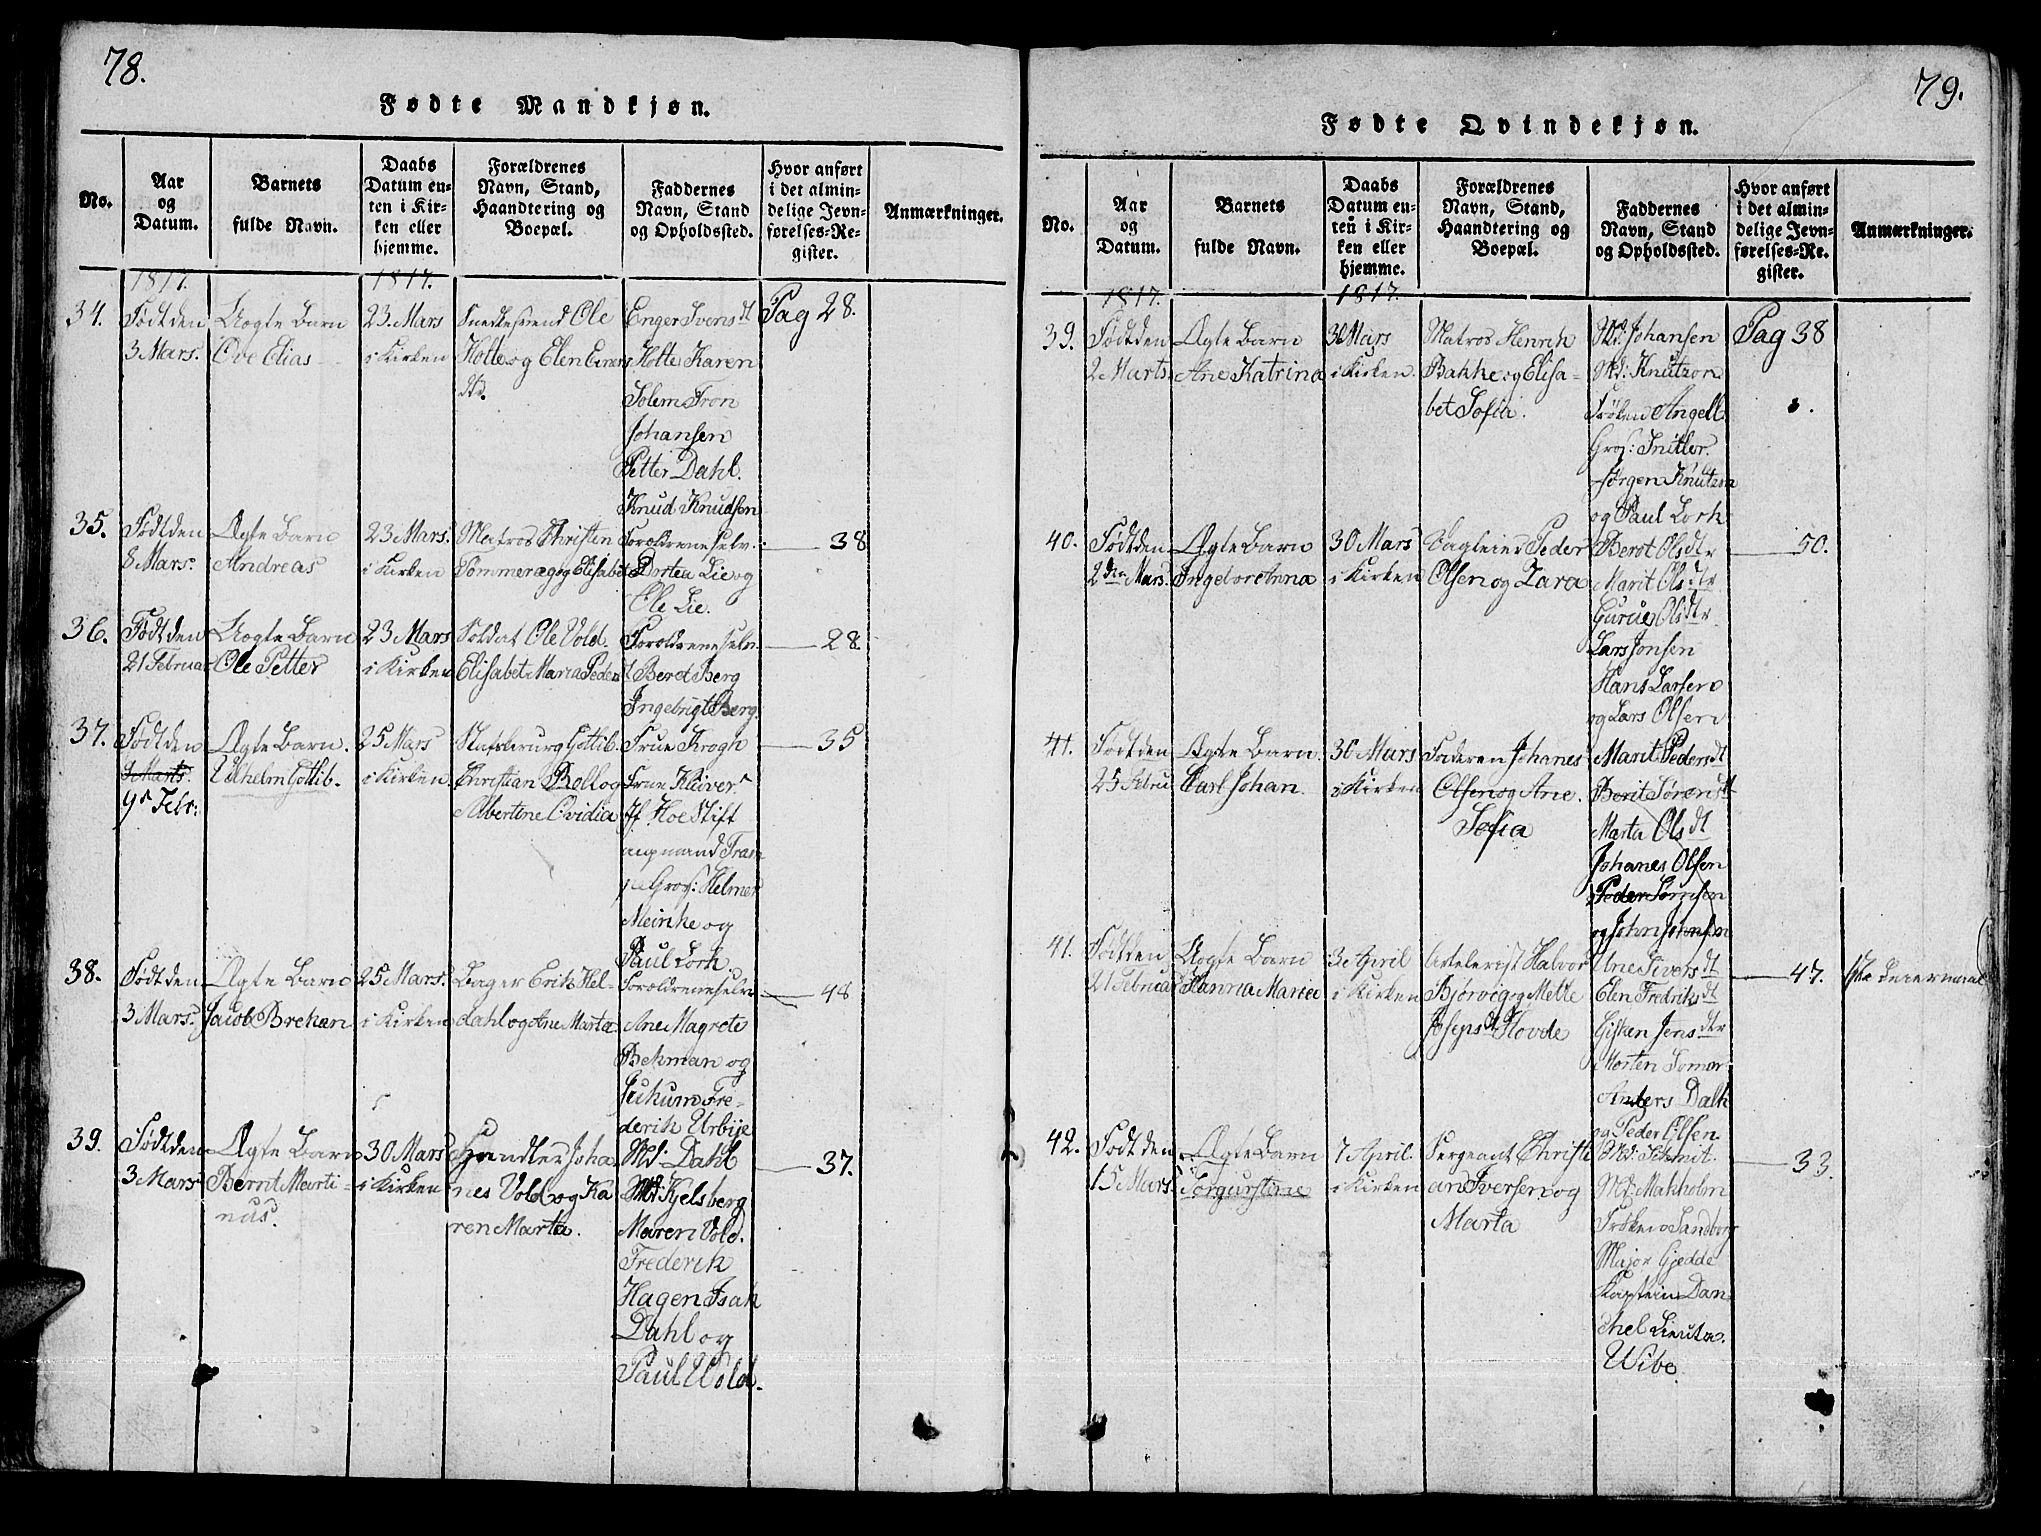 78.
Fødte Mandkjøn.
No.
Aar
og
Datum.
Barnets
fulde Navn.
Daabs
Datum en-
ten i Kir-
ken eller
hjemme.
Forældrenes
Navn, Stand,
Haandtering og
Boepæl.
Faddernes
Navn, Stand
og Opholdssted.
Hvor anført
i det almin-
delige Jevn-
førelses-Re-
gister.
Anmærkninger.
1817.
1817.
34.
Født den
3 Mars.
Uægte Barn
Ove Elias
23. Mars
i Kirken
Ole
Holte og Elen
Enger Ivens dt
Holte Karen
Solem Tron
Johansen
Petter Dahl.
Knud Knudsen
Pag 28.
35.
Født den
8 Mars.
Ægte Barn
Andreas
23 Mars.
i Kirken
Matros Christen
og Elisabet
Foreldrene selv.
Dortea Lie og
Ole Lie.
38
36.
Født den
21 Februar
Uægte Barn
Ole Petter
23 Mars
i Kirken
Soldat Ole Vold.
Elisabet Maria Peders
Foreldrene selv.
Berot Berg
Ingebrigt Berg.
28
37.
Født den
9 Marts.
9de Febr:
Ægte Barn.
Vilhelm Gotlib.
25 Mars
i Kirken
Gotlib.
Christian Boll og
Albertine Ovidia
Frue Krogh
Frue Kliver
Hoe Stift
Gros: Helmer
Meinke og
Paul Lork
35
38.
Født den
3 Mars.
Ægte Barn
Jacob Brekan
25 Mars.
i Kirken
Bager Erik Hel-
dahl og Ane Marta
Foreldrene selv
Ane Magrete
Bekman og
Jukum Fre-
derik Urbije
48
39.
Født den
3 Mars
Ægte Barn
Bernt Marti-
nus.
30 Mars
i Kirken
Handler Joha
nes Vold og Ka
ren Marta.
Md: Dahl
Md: Kjelsberg
Maren Vold.
Frederik
Hagen Isak
Dahl og
Paul Wold.
37.
79.
Fødte Qvindekjøn.
No.
Aar
og
Datum.
Barnets
fulde Navn.
Daabs
Datum en-
ten i Kir-
ken eller
hjemme.
Forældrenes
Navn, Stand,
Haandtering og
Boepæl.
Faddernes
Navn, Stand
og Opholdssted.
Hvor anført
i det almin-
delige Jevn-
førelses-Re-
gister.
Anmærkninger.
1817.
1817.
39.
Født den
2 Marts.
Ægte Barn
Ane Katrina
30 Mars
i Kirken.
Matros Henrik
Bakke og Elisa-
bet Sofia.
Md: Johansen
Md: Knutzon
Frøken Angell
Gros: Snitler.
Jørgen Knutzon
og Paul Lork
Pag 38
40.
Født den
2den Mars.
Ægte Barn
Ingeborg Anna
30 Mars
i Kirken
Peder
Olsen og Zara
Berot Olsdtr
Marit Olsdtr
Gurue Olsdtr
Lars Jonsen
Hans Larsen
og Lars Olsen
50.
41.
Født den
25 Febru
Ægte Barn.
Carl Johan.
30 Mars
i Kirken
Faderen Johanes
Olsen og Ane.
Sofia
Marit Peders dt
Berit Søren dt
Marta Ols dt
Johanes Olsen
Peder Sørnsen
og John Johnsen
41.
Født den
21 Februar
Uægte Barn
Hanna Maria
3 April
i Kirken
Halvor
Bjørvig og Mette
Joseps dt Hovde
Ane Sivers dt
Elen Fredriks dt
Gisken Jens dtr
Morten Somer
Anders Dalh
og Peder Elsen
47.
1ste Leiermaal
42.
Født den
15 Mars.
Ægte Barn
Jørgurstine
7 April.
i Kirken
Sergeant Christi
an Iversen og
Marta
Md: Schmit.
Md: Makholm
Frøken Sandborg
Major Gjedde
Kaptein Dan-
chel Lieutn.
Wibe
33.